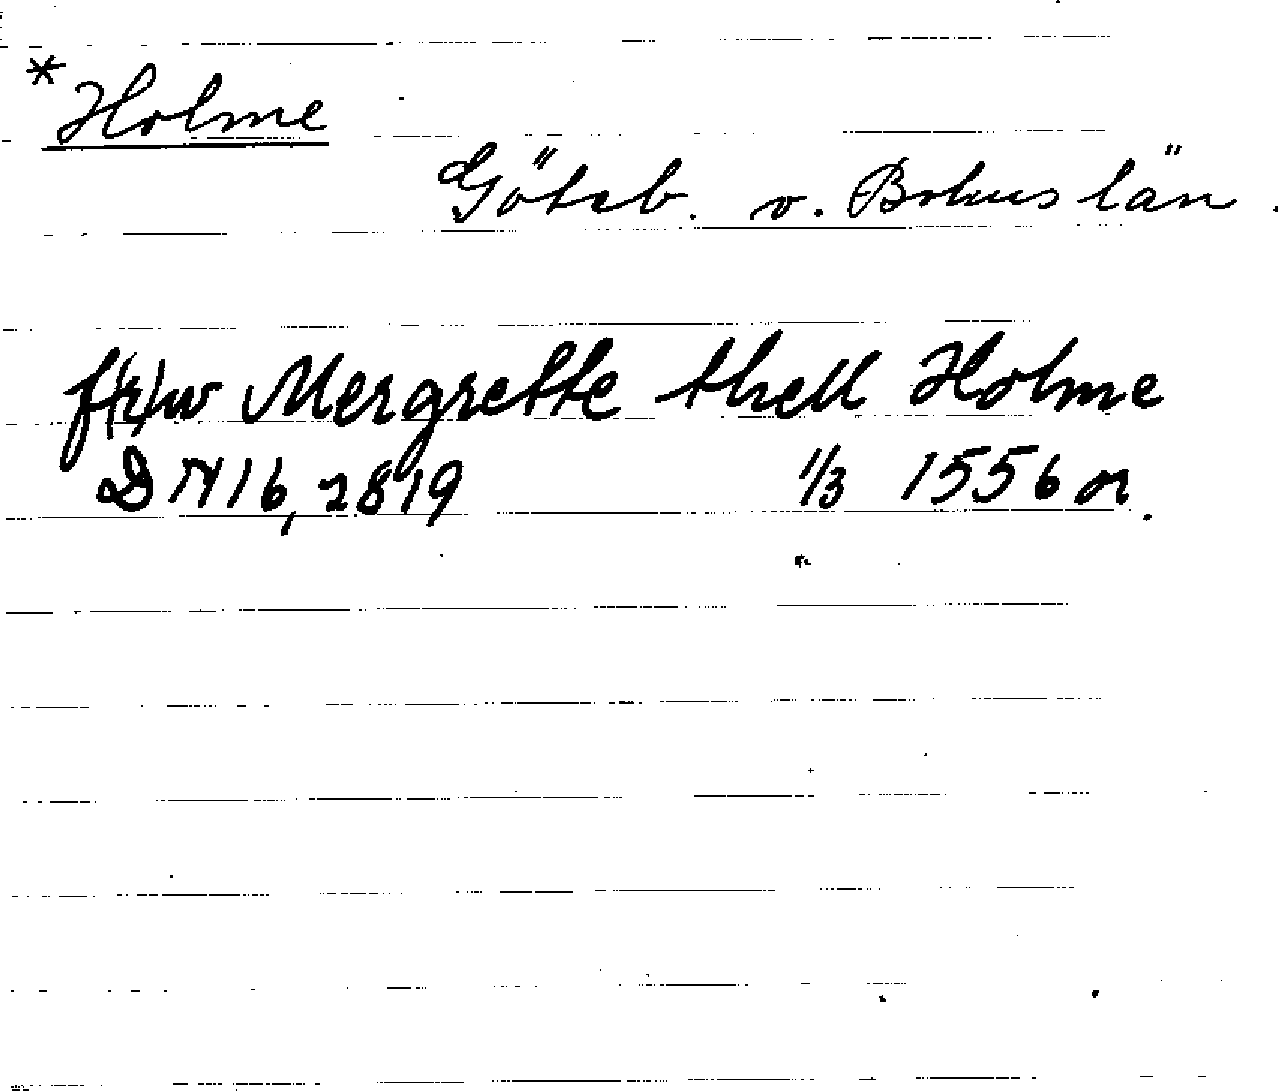 *Holme
Göteb. o. Bohus län.
f(r)w Mergrette thell Holme
DN 16, 2819 1/3 1556 or.